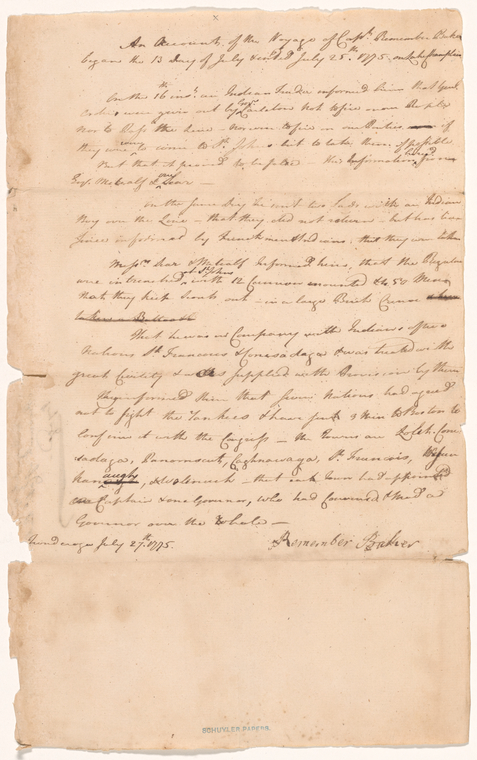 An Account of the Voyage of Capt. Remember Baker
began the 13 Day of July & ended July 25th 1775, on Lake Champlain
On the 16th inst. an Indian informed him that Genl
orders were given out by Govr Carleton not to fire upon the
nor to Pass the line - nor to fire on our Parties of
they were to come to St. Johns - but to take them if possible
But that it proved to be false - this information from
Esqr. Metcalf & Mr
on the same Day he sent two Lads with an Indian
they over the Line - that they did not return - but has been
since informed by Frenchmen & Indians, that they were taken
Messrs & Metcalf Informed him, that the Regulars
at St Johns
were intrenched with 12 Cannon mounted & 450 Men
that they keep Scouts out - in a large Birch Canoe
That he was in Company with Indians of two
Nations St. Francois & Conesadaga & was treated with
great Civility & was supplied with Provision by them
They informed him that Seven Nations had agreed
not to fight the Yankees & have sent 3 Men to Boston to
Confirm it with the Congress - the Towns are
Caghnawaga, St. Francois,
- that each Town had appointed
Captain & one Governor, who had Convened & made a
Governor over the Whole -
July 27th 1775. Remember Baker
SCHUYLER PAPERS